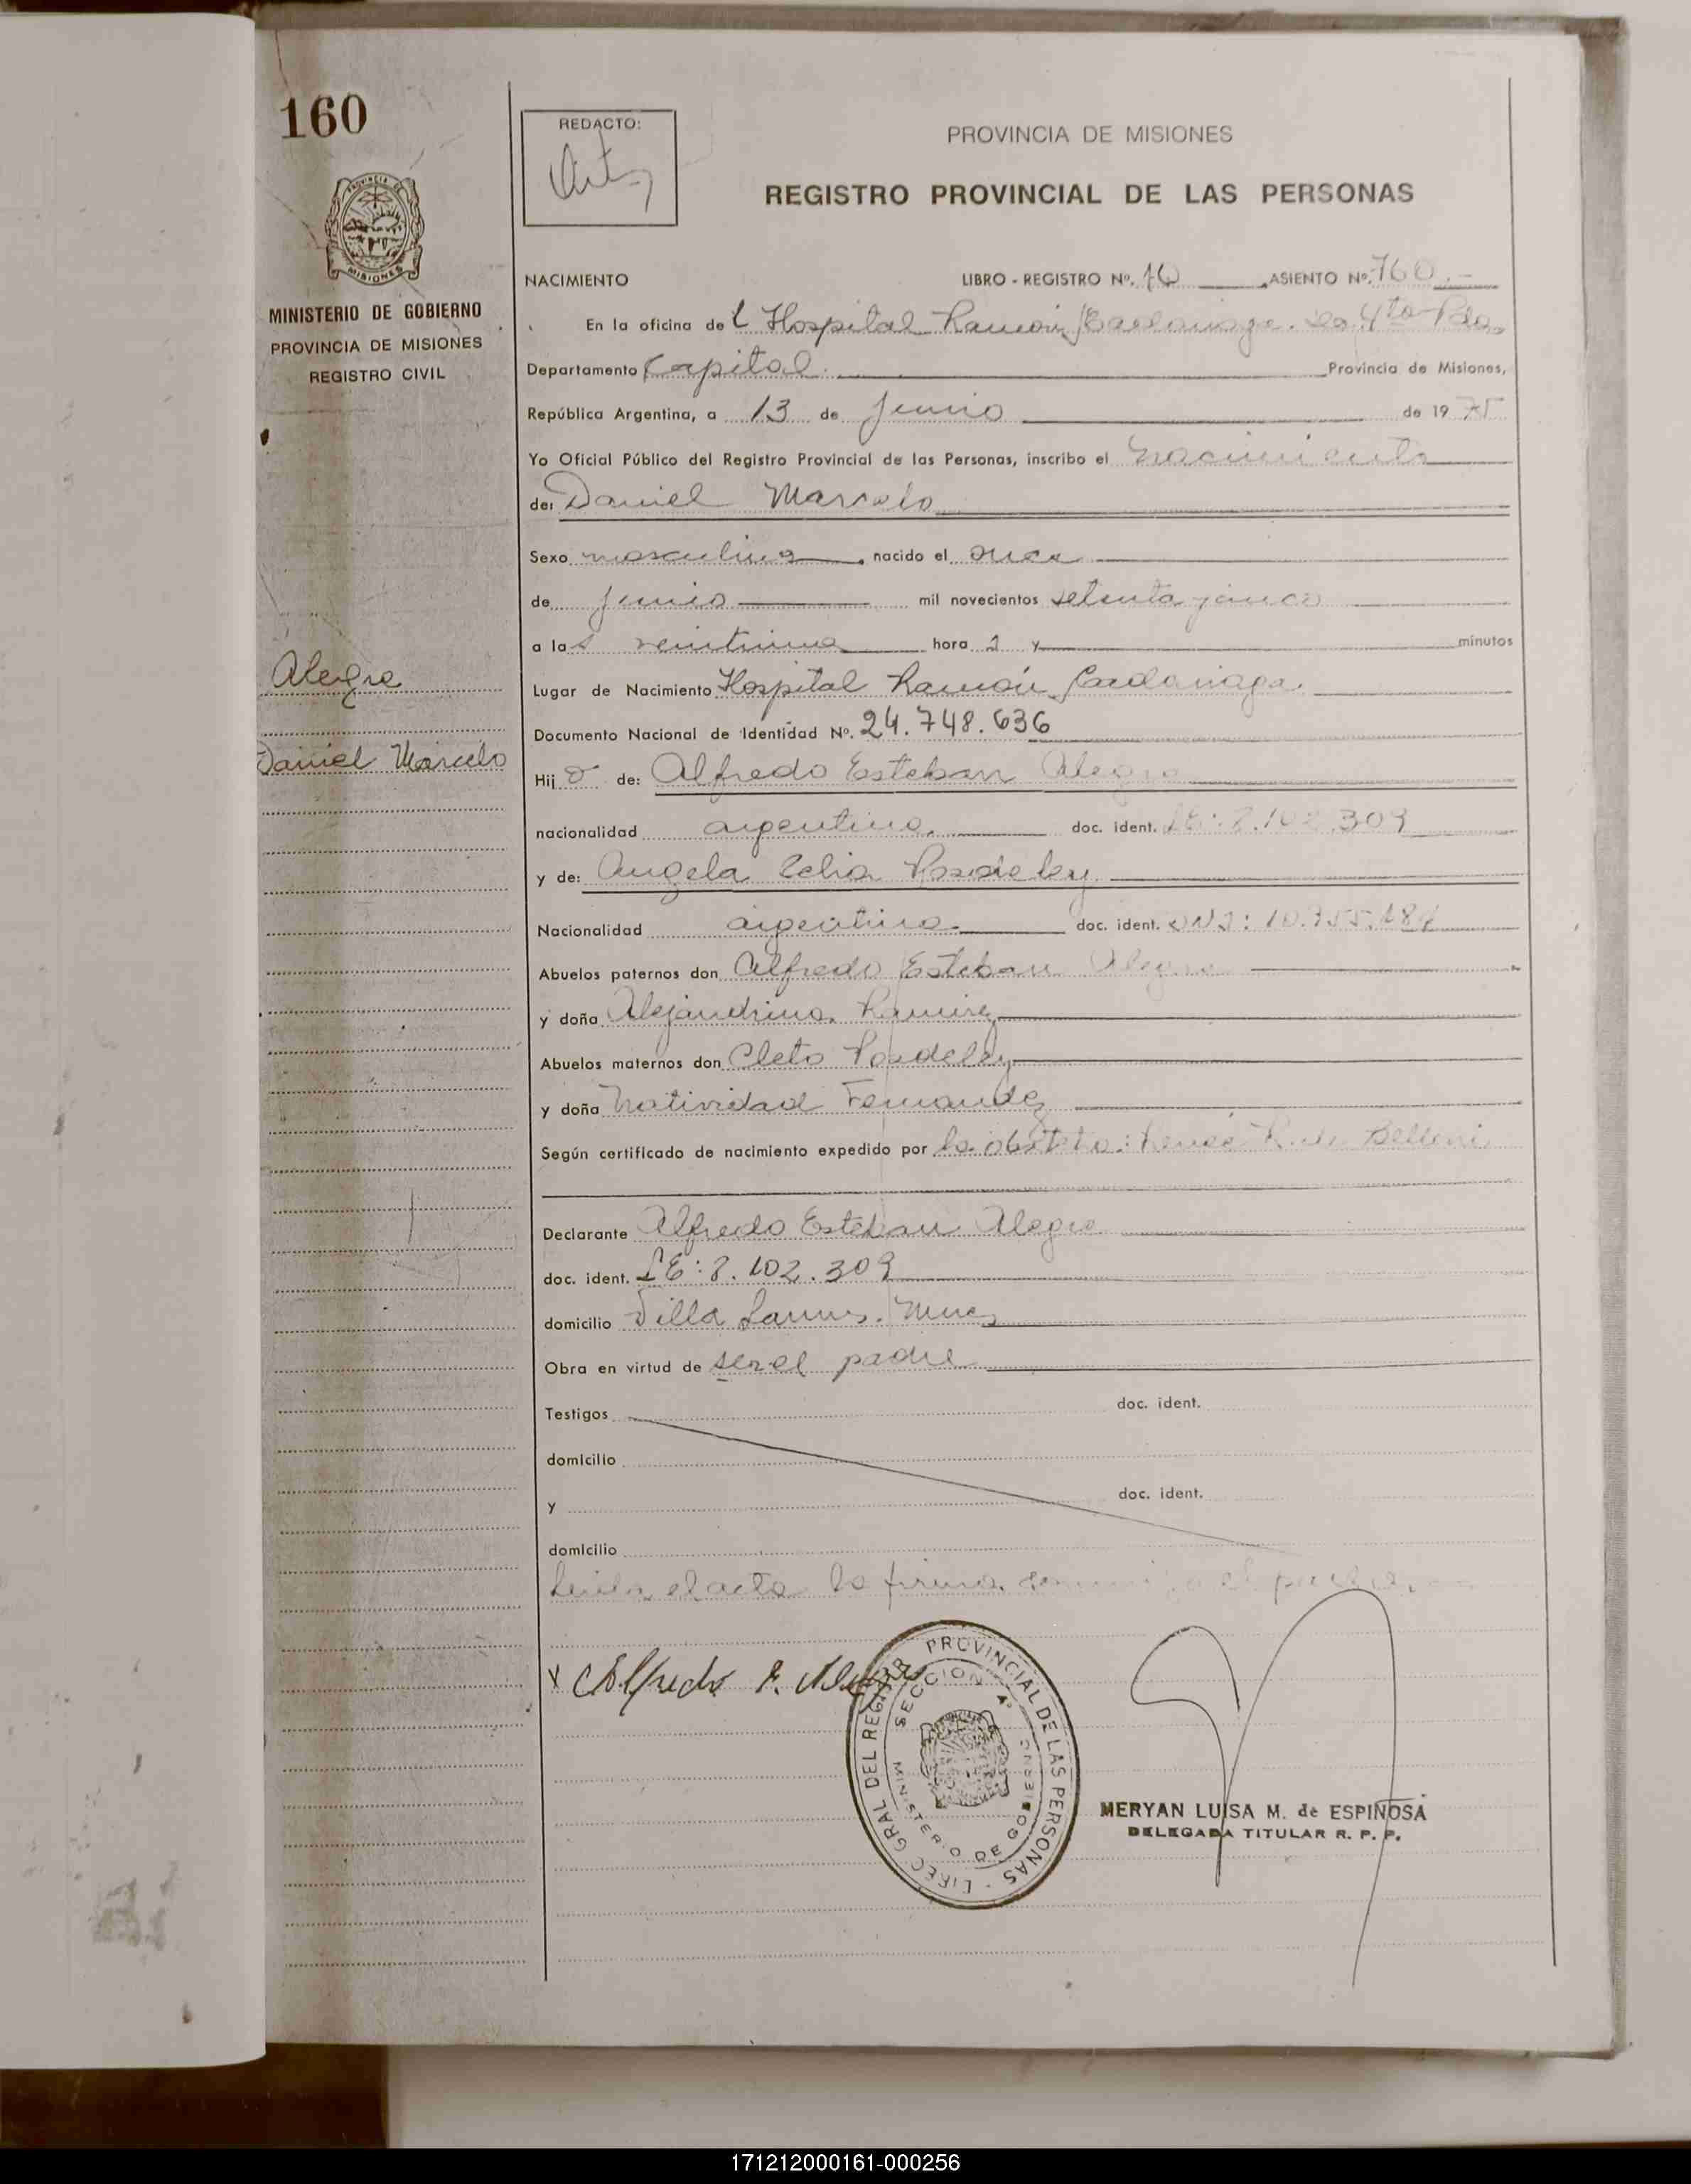 160
REDACTO:
PROVINCIA DE MISIONES
REGISTRO PROVINCIAL DE LAS PERSONAS
PROVINCIA DE
MISIONES
MINISTERIO DE GOBIERNO
PROVINCIA DE MISIONES
REGISTRO CIVIL
NACIMIENTO LIBRO - REGISTRO Nº. ASIENTO Nº. 160.-
En la oficina del Hospital Ramón 4ta Pdas.
Departamento Capital. Provincia de Misiones,
República Argentina, a 13 de junio de 1975
Yo Oficial Público del Registro Provincial de las Personas, inscribo el nacimiento
de: Daniel Marcelo
Sexo masculino, nacido el once
de junio mil novecientos setenta y cinco
a las veintiuna hora s y minutos
Lugar de Nacimiento Hospital Ramón
Documento Nacional de Identidad Nº. 24.748.636
Alegre
Daniel Marcelo
Hijo de: Alfredo Esteban Alegre
nacionalidad argentino. doc. ident. LE: 8.102.309
y de: Angela
Nacionalidad argentina doc. ident. DNI:
Abuelos paternos don Alfredo Esteban Alegre
y doña Alejandrina Ramirez
Abuelos maternos don Cleto
y doña Natividad Fernandez
Según certificado de nacimiento expedido por la obstetra: Belloni
Declarante Alfredo Esteban Alegre
doc. ident. LE: 8.102.309
domicilio Villa Lanus. Mnes
Obra en virtud de ser el padre
Testigos doc. ident.
domicilio
y doc. ident.
domicilio
Leida el acta la firma el padre.
x Alfredo E. Alegre
DIREC GRAL DEL REGISTR PROVINCIAL DE LAS PERSONAS
SECCION 4ª
MINISTERIO DE GOBIERNO
MERYAN LUISA M. de ESPINOSA
DELEGADA TITULAR R. P. P.
171212000161-000256